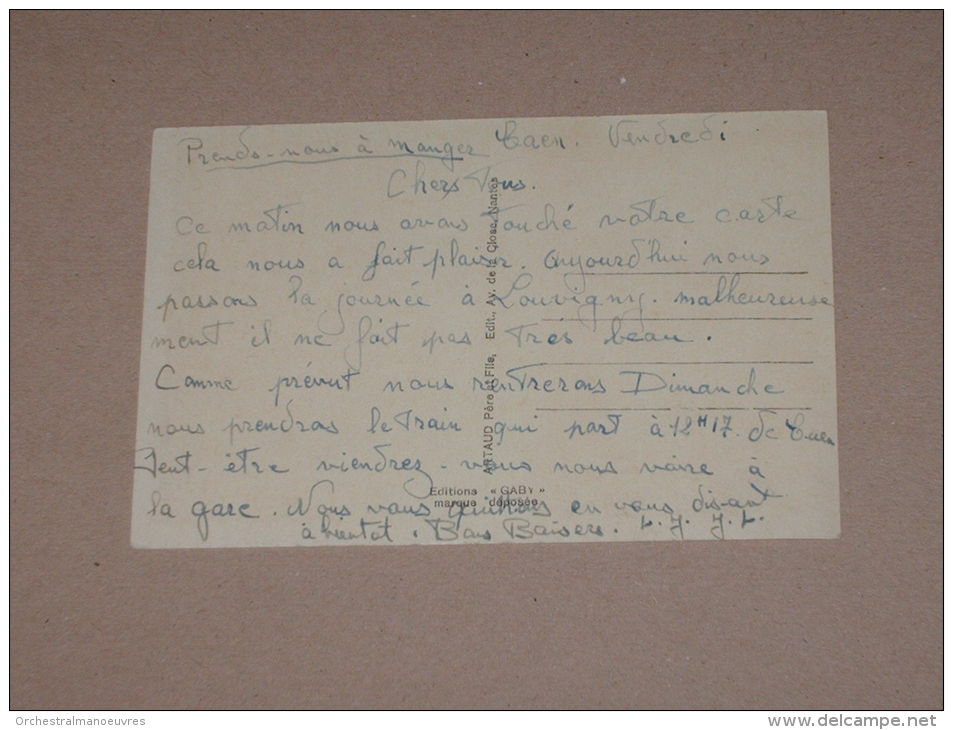 Prends-nous à manger Caen. Vendredi
Chers Tous.
Ce matin nous avons touché votre carte
cela nous a fait plaisir. aujourd'hui nous
passons la journée à Louvigny. malheureuse
ment il ne fait pas Très beau.
Comme prévut nous rentrerons Dimanche
nous prendrons le train qui part à 12H17. de Caen
Peut-être viendrez-vous nous voire à
la gare. Nous vous quittons en vous disant
à bientot. Bons Baisers. L. J. J. L.
ARTAUD Père et Fils, Edit., Av. de la Close, Nantes
Editions « GABY »
marque déposée
Orchestralmanoeuvres
www.delcampe.net